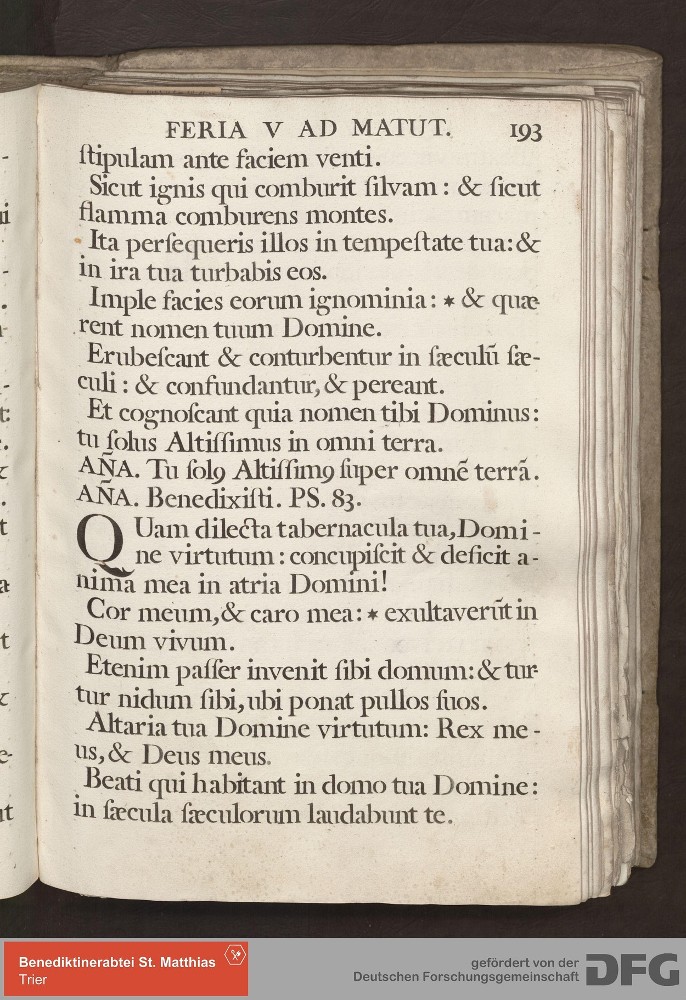 FERIA V AD MATUT. 193
ſtipulam ante faciem venti.
Sicut ignis qui comburit ſilvam : & ſicut
flamma comburens montes.
Ita perſequeris illos in tempeſtate tua: &
in ira tua turbabis eos.
Imple facies eorum ignominia: * & quæ
rent nomen tuum Domine.
Erubeſcant & conturbentur in ſæculū ſæ-
culi : & confundantur, & pereant.
Et cognoſcant quia nomen tibi Dominus:
tu ſolus Altiſſimus in omni terra.
AÑA. Tu ſolꝯ Altiſſimꝯ ſuper omnē terrā.
AÑA. Benedixiſti. PS. 83.
QUam dilecta tabernacula tua, Domi-
ne virtutum : concupiſcit & deficit a-
nima mea in atria Domini!
Cor meum, & caro mea: * exultaverūt in
Deum vivum.
Etenim paſſer invenit ſibi domum: & tur-
tur nidum ſibi, ubi ponat pullos ſuos.
Altaria tua Domine virtutum: Rex me-
us, & Deus meus.
Beati qui habitant in domo tua Domine:
in ſæcula ſæculorum laudabunt te.
Benediktinerabtei St. Matthias
Trier
gefördert von der
Deutschen Forschungsgemeinschaft
DFG